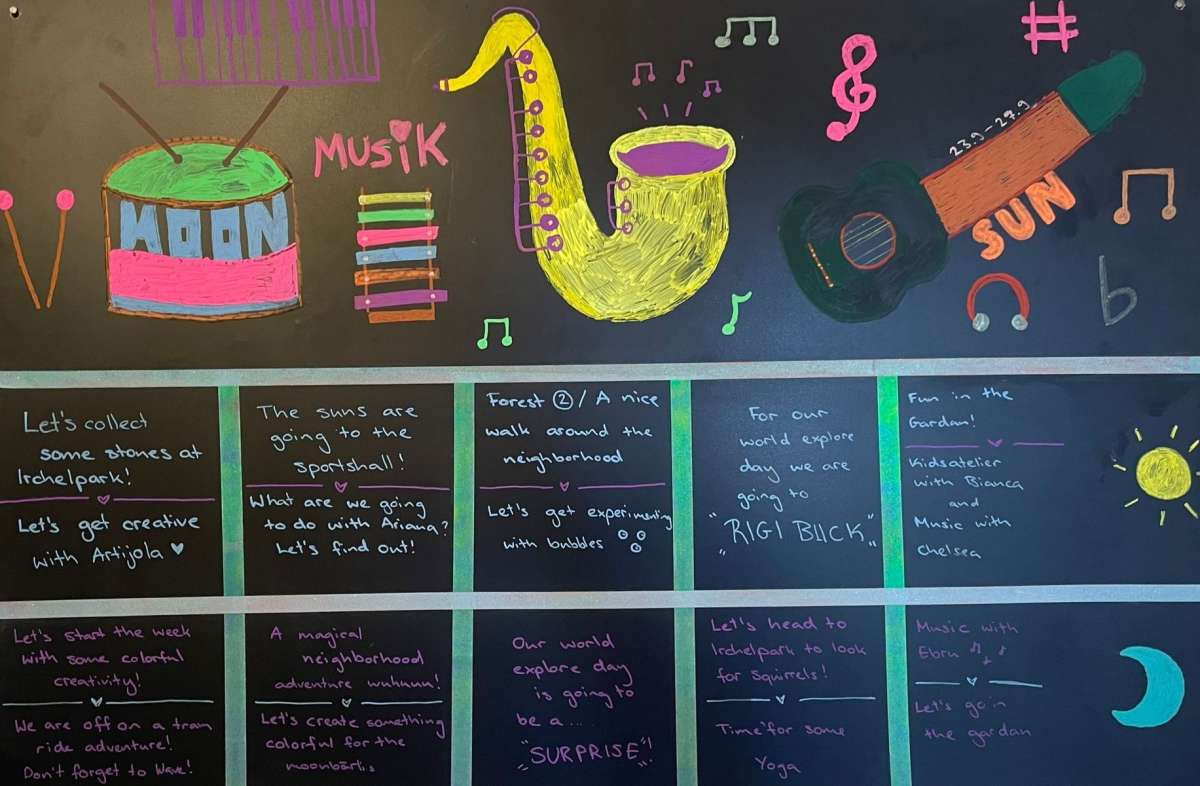 MUSiK
MOON
23.9 - 27.9
SUN
Let's collect
some stones at
Irchelpark!
Let's get creative
with Artijola ♥
The suns are
going to the
sportshall!
What are we going
to do with Ariana?
Let's find out!
Forest ② / A nice
walk around the
neighborhood
Let's get experimenting
with bubbles
For our
world explore
day we are
going to
"RIGI BLICK"
Fun in the
Gardan!
Kidsatelier
with Bianca
and
Music with
Chelsea
Let's start the week
with some colorful
creativity!
We are off on a tram
ride adventure!
Don't forget to Wave!
A magical
neighborhood
adventure wuhuuu!
Let's create something
colorful for the
moonbärlis
Our world
explore day
is going to
be a ....
"SURPRISE"!
Let's head to
Irchelpark to look
for squirrels!
Time for some
Yoga
Music with
Ebru
Let's go in
the gardan